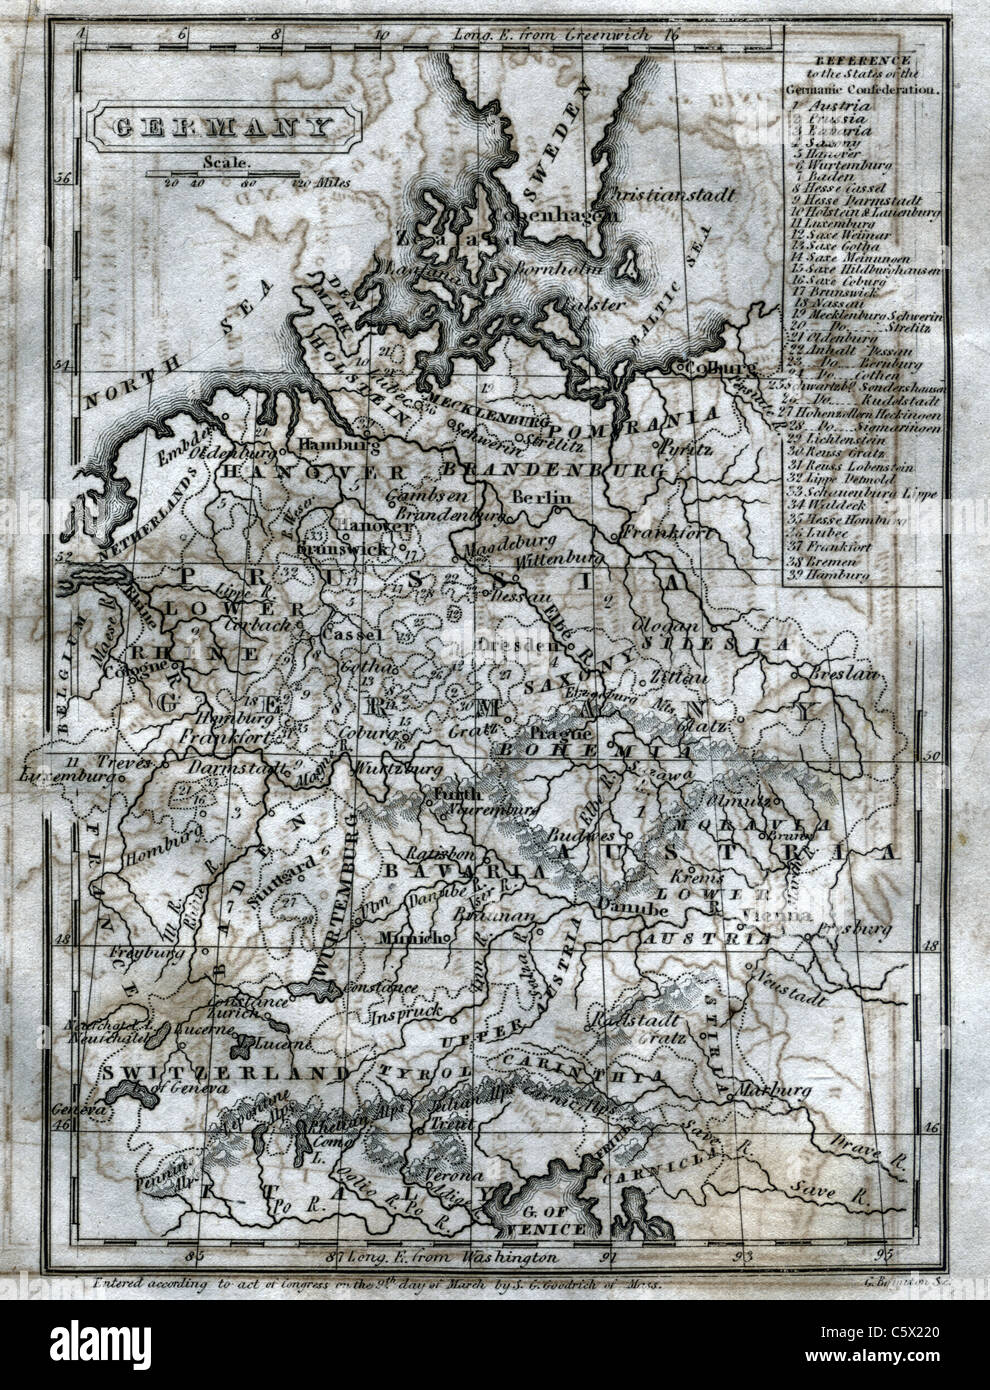 4 6 8 10 Long. E. from Greenwich 16
GERMANY
Scale.
20 40 80 120 Miles
REFERENCE
to the States of the
Germanic Confederation.
1 Austria
2 Prussia
3 Bavaria
4 Saxony
5 Hanover
6 Wurtemburg
7 Baden
8 Hesse Cassel
9 Hesse Darmstadt
10 Holstein & Lauenburg
11 Luxemburg
12 Saxe Weimar
13 Saxe Gotha
14 Saxe Meinungen
15 Saxe Hildburghausen
16 Saxe Coburg
17 Brunswick
18 Nassau
19 Mecklenburg Schwerin
20 Do. Strelitz
21 Oldenburg
22 Anhalt Dessau
23 Do. Bernburg
24 Do. Cothen
25 Schwartzbg. Sondershausen
26 Do. Rudelstadt
27 Hohenzollern Heckingen
28 Do. Sigmaringen
29 Lichtenstein
30 Reuss Gratz
31 Reuss Lobenstein
32 Lippe Detmold
33 Schauenburg Lippe
34 Waldeck
35 Hesse Homburg
36 Lubec
37 Frankfort
38 Bremen
39 Hamburg
56
SWEDEN
Christianstadt
Copenhagen
Zealand
Laaland
Bornholm
Falster
BALTIC SEA
NORTH SEA
DENMARK
HOLSTEIN
54
Lubec
Colburg
MECKLENBURG
POMERANIA
Schwerin
Strelitz
Pyritz
Embden
Oldenburg
Hamburg
HANOVER
BRANDENBURG
NETHERLANDS
Gambsen
Brandenburg
Berlin
Hanover
Brunswick
Frankfort
Magdeburg
Wittenburg
52
PRUSSIA
Lippe R.
Dessau
Rhine
LOWER
RHINE
Corbach
Cassel
Elbe R.
Dresden
Glogau
SILESIA
BELGIUM
Maese R.
Cologne
Gotha
SAXONY
Zittau
Breslau
GERMANY
Homburg
Frankfort
Coburg
Gratz
Erzgeburg Mts.
Glatz
Prague
BOHEMIA
11 Treves
Luxemburg
Darmstadt
Mayn R.
Wurtzburg
50
Furth
Nuremburg
Elbe R.
Sazawa
Olmutz
MORAVIA
Brunn
FRANCE
Homburg
BADEN
Stuttgard
WURTEMBURG
Ratisbon
BAVARIA
Budweis
AUSTRIA
Krems
LOWER
AUSTRIA
Ill R.
Rhine R.
Ulm
Danube R.
Iser R.
Braunan
Danube R.
Vienna
Presburg
48
Freyburg
Munich
Inn R.
Salza R.
UPPER AUSTRIA
Neustadt
Constance
L. Constance
Zurich
Inspruck
Radstadt
Gratz
STIRIA
Neufchatel L.
Neufchatel
Lucerne
L. Lucerne
SWITZERLAND
TYROL
CARINTHIA
L. of Geneva
Geneva
Marburg
Lepontine Alps
Rhetian Alps
Julian Alps
Carnic Alps
46
Como L.
Trent
FRIULI
Save R.
Drave R.
CARNIOLA
Pennine Alps
Verona
Oglio R.
Adige
ITALY
Po R.
Po R.
G. OF
VENICE
Save R.
85 87 Long. E. from Washington 91 93 95
Entered according to act of Congress on the 9th day of March by S. G. Goodrich of Mass.
G. Boynton Sc.
alamy
C5X220
www.alamy.com